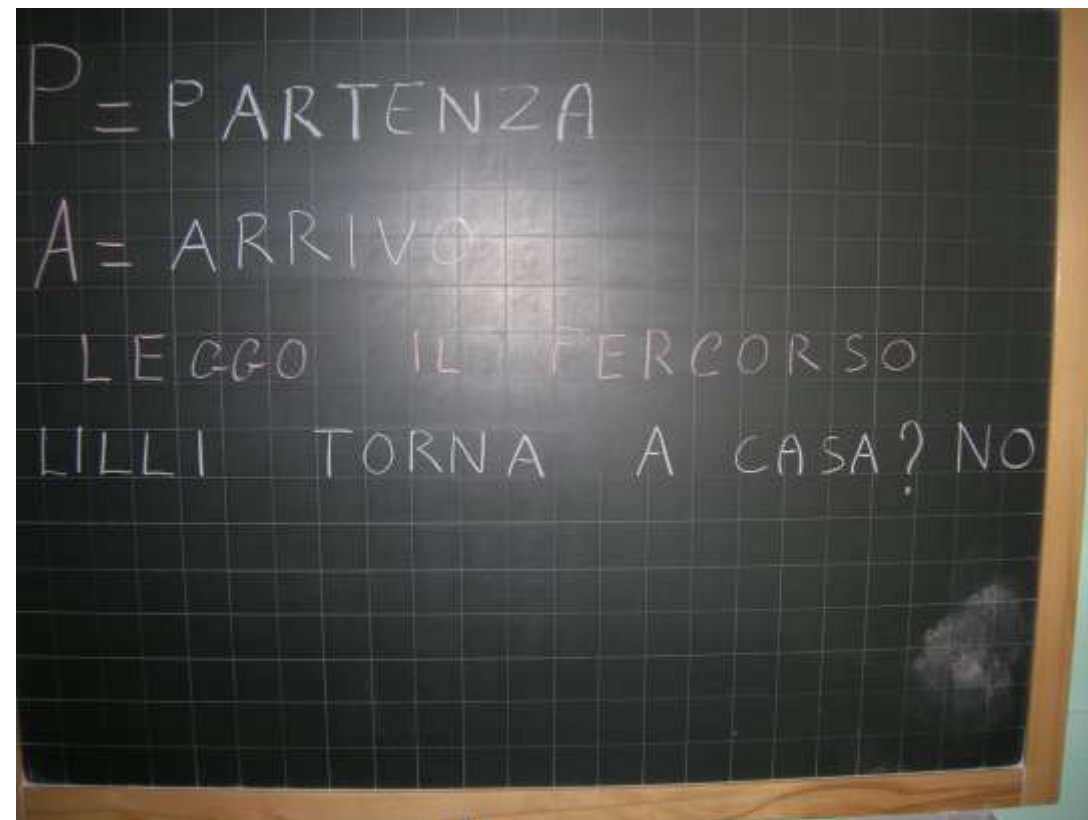 P = PARTENZA
A = ARRIVO
LEGGO IL PERCORSO
LILLI TORNA A CASA? NO